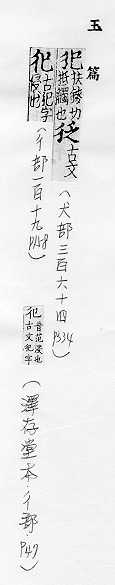 玉篇
犯扶鋄切抵觸也𢓱古文
(犬部三百六十四 P334)
㐽古犯字侵也
(彳部一百十九 P148)
㐽音范浸也古文犯字
(澤存堂本·彳部·P47)